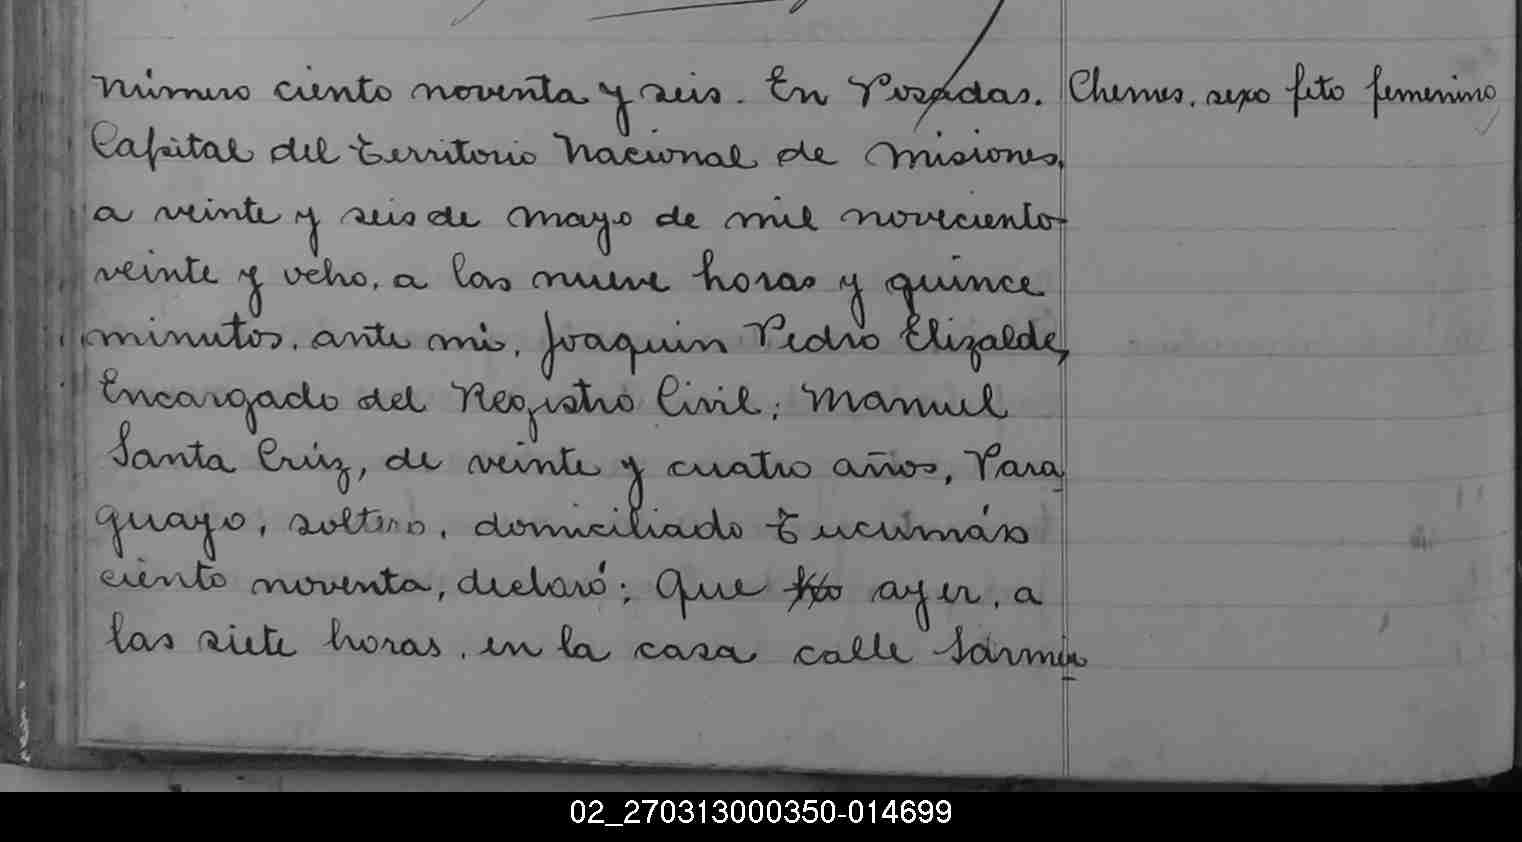 Número ciento noventa y seis. En Posadas. Chemes. sexo feto femenino
Capital del Territorio Nacional de Misiones,
a veinte y seis de Mayo de mil noveciento
veinte y ocho, a las nueve horas y quince
minutos, ante mi, Joaquin Pedro Elizalde,
Encargado del Registro Civil; Manuel
Santa Crúz, de veinte y cuatro años, Para
guayo, soltero, domiciliado Tucumán
ciento noventa, declaró: Que ayer, a
las siete horas, en la casa calle Sarmien
02_270313000350-014699